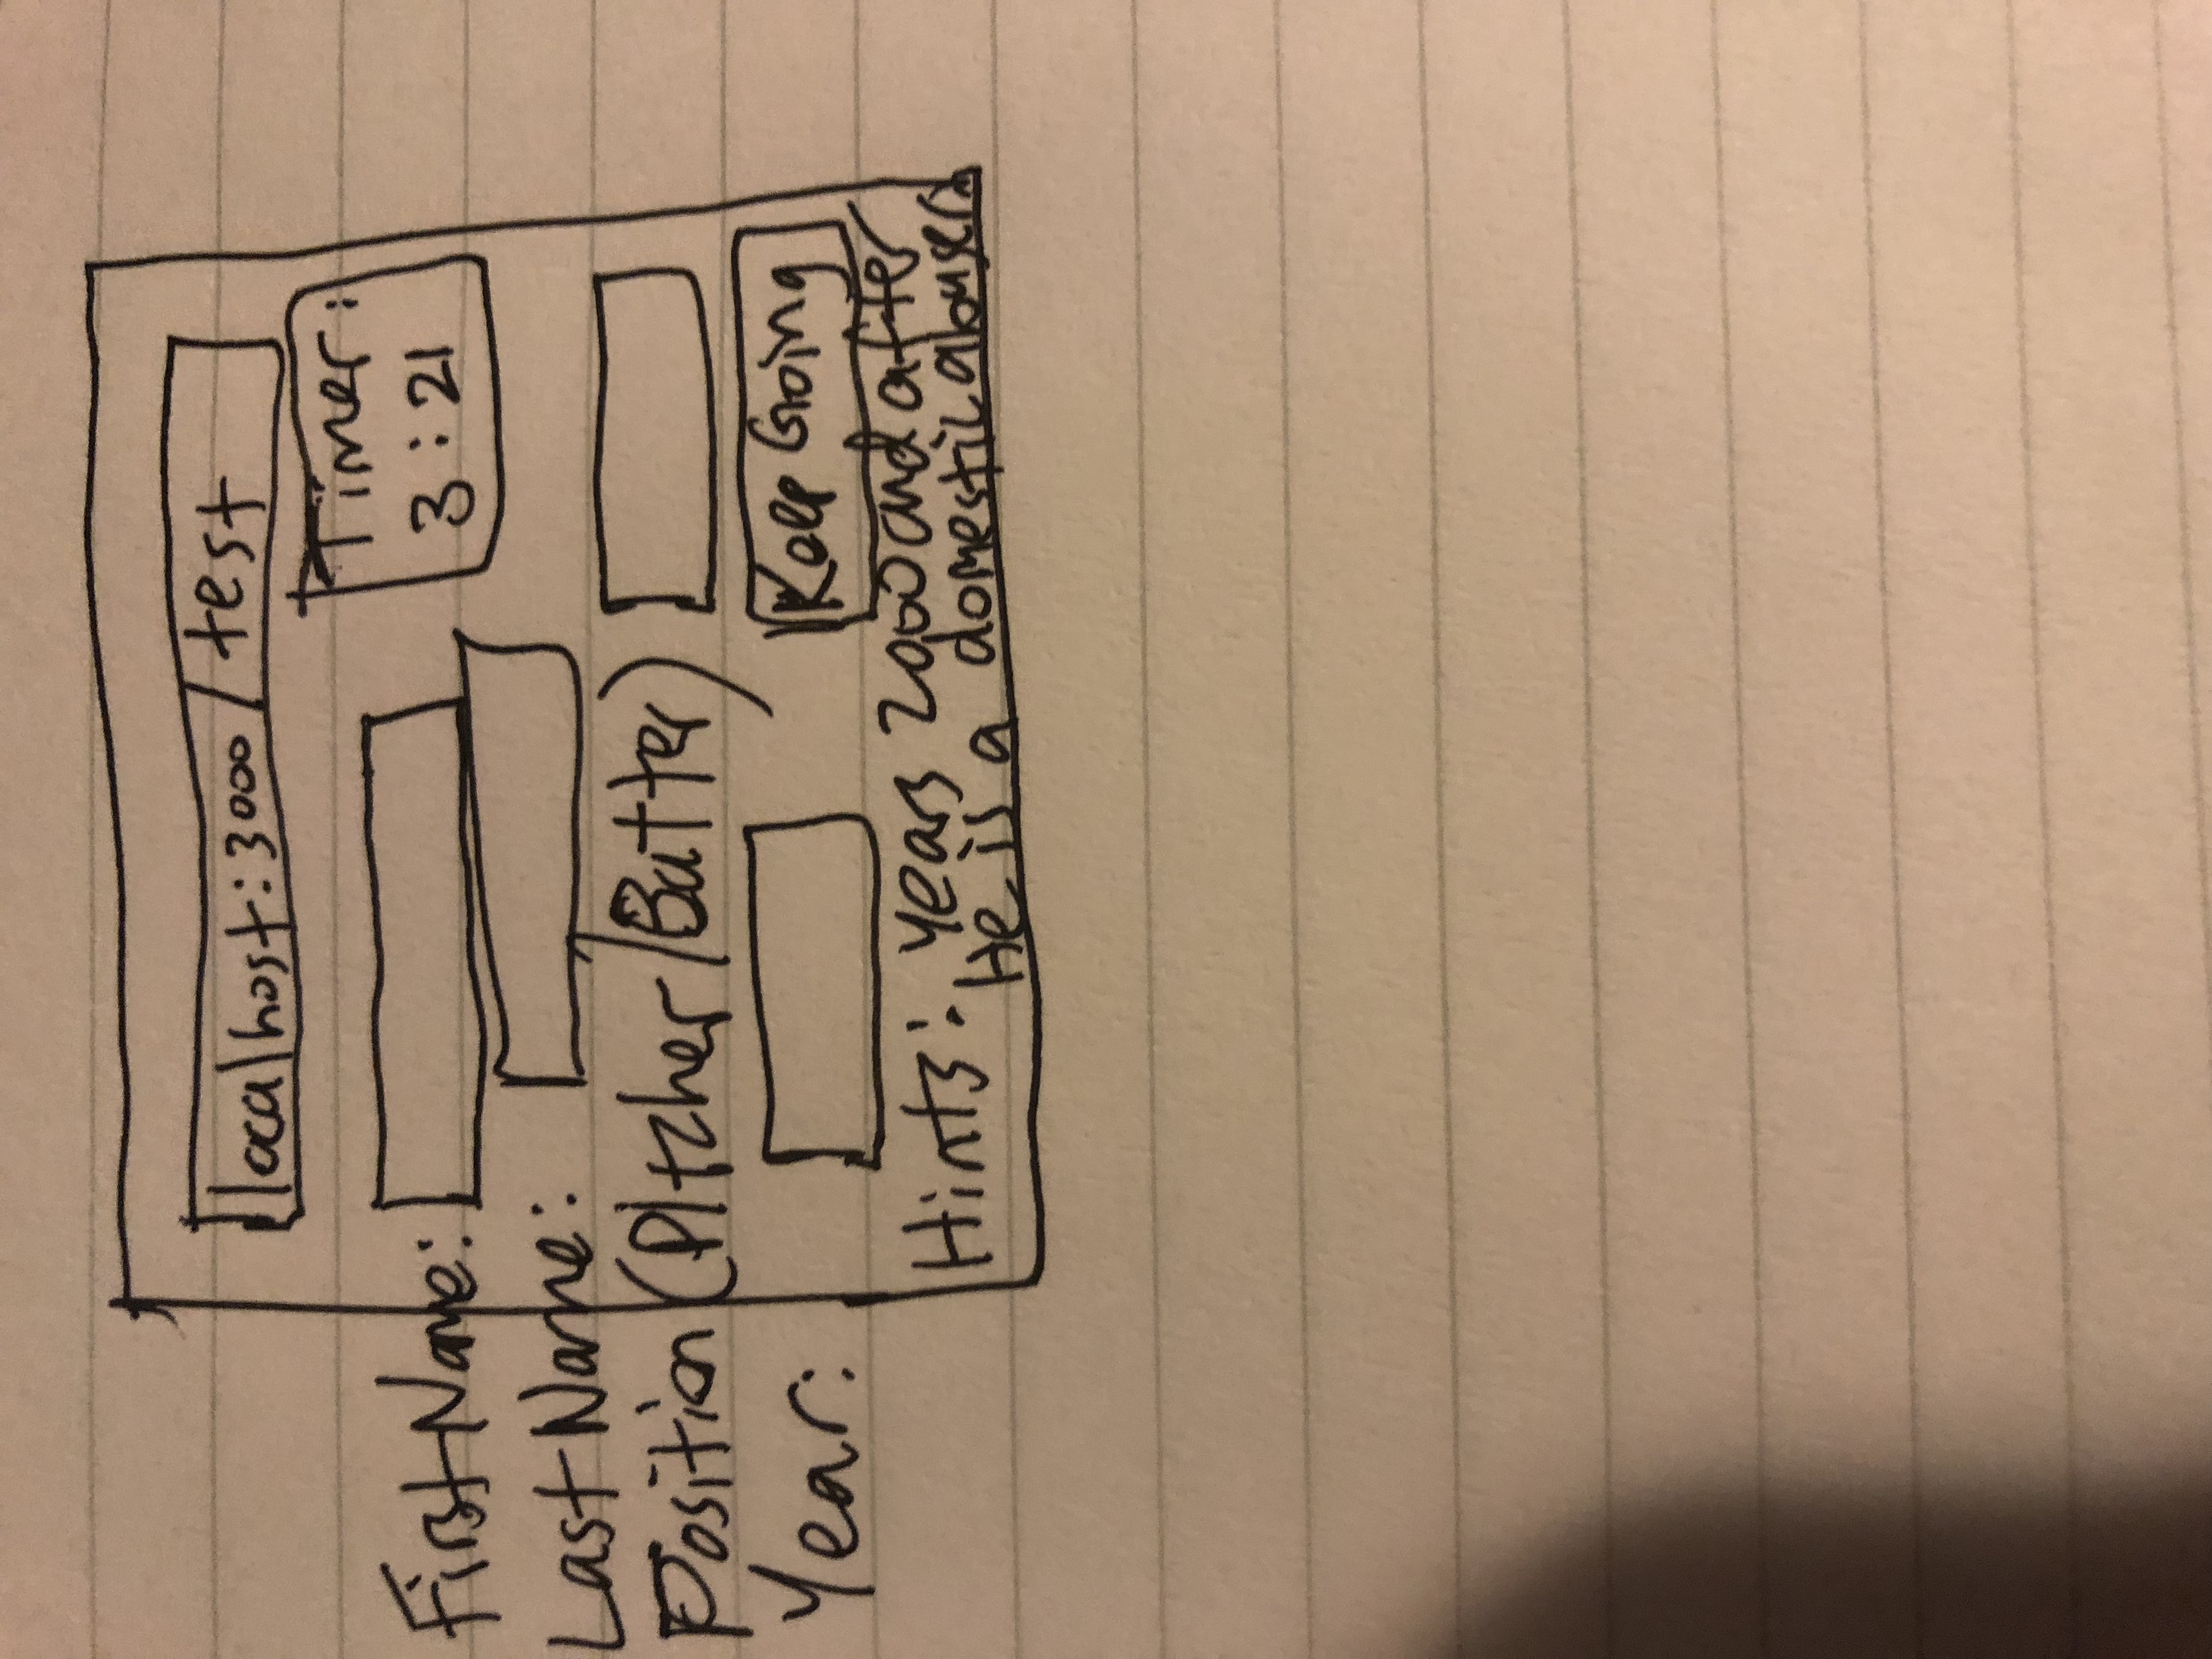 localhost:3000/test
Timer:
3:21
First Name:
Last Name:
Position (Pitcher/Batter)
Year:
Keep Going
Hints: years 2000 and after
He is a domestic abuser